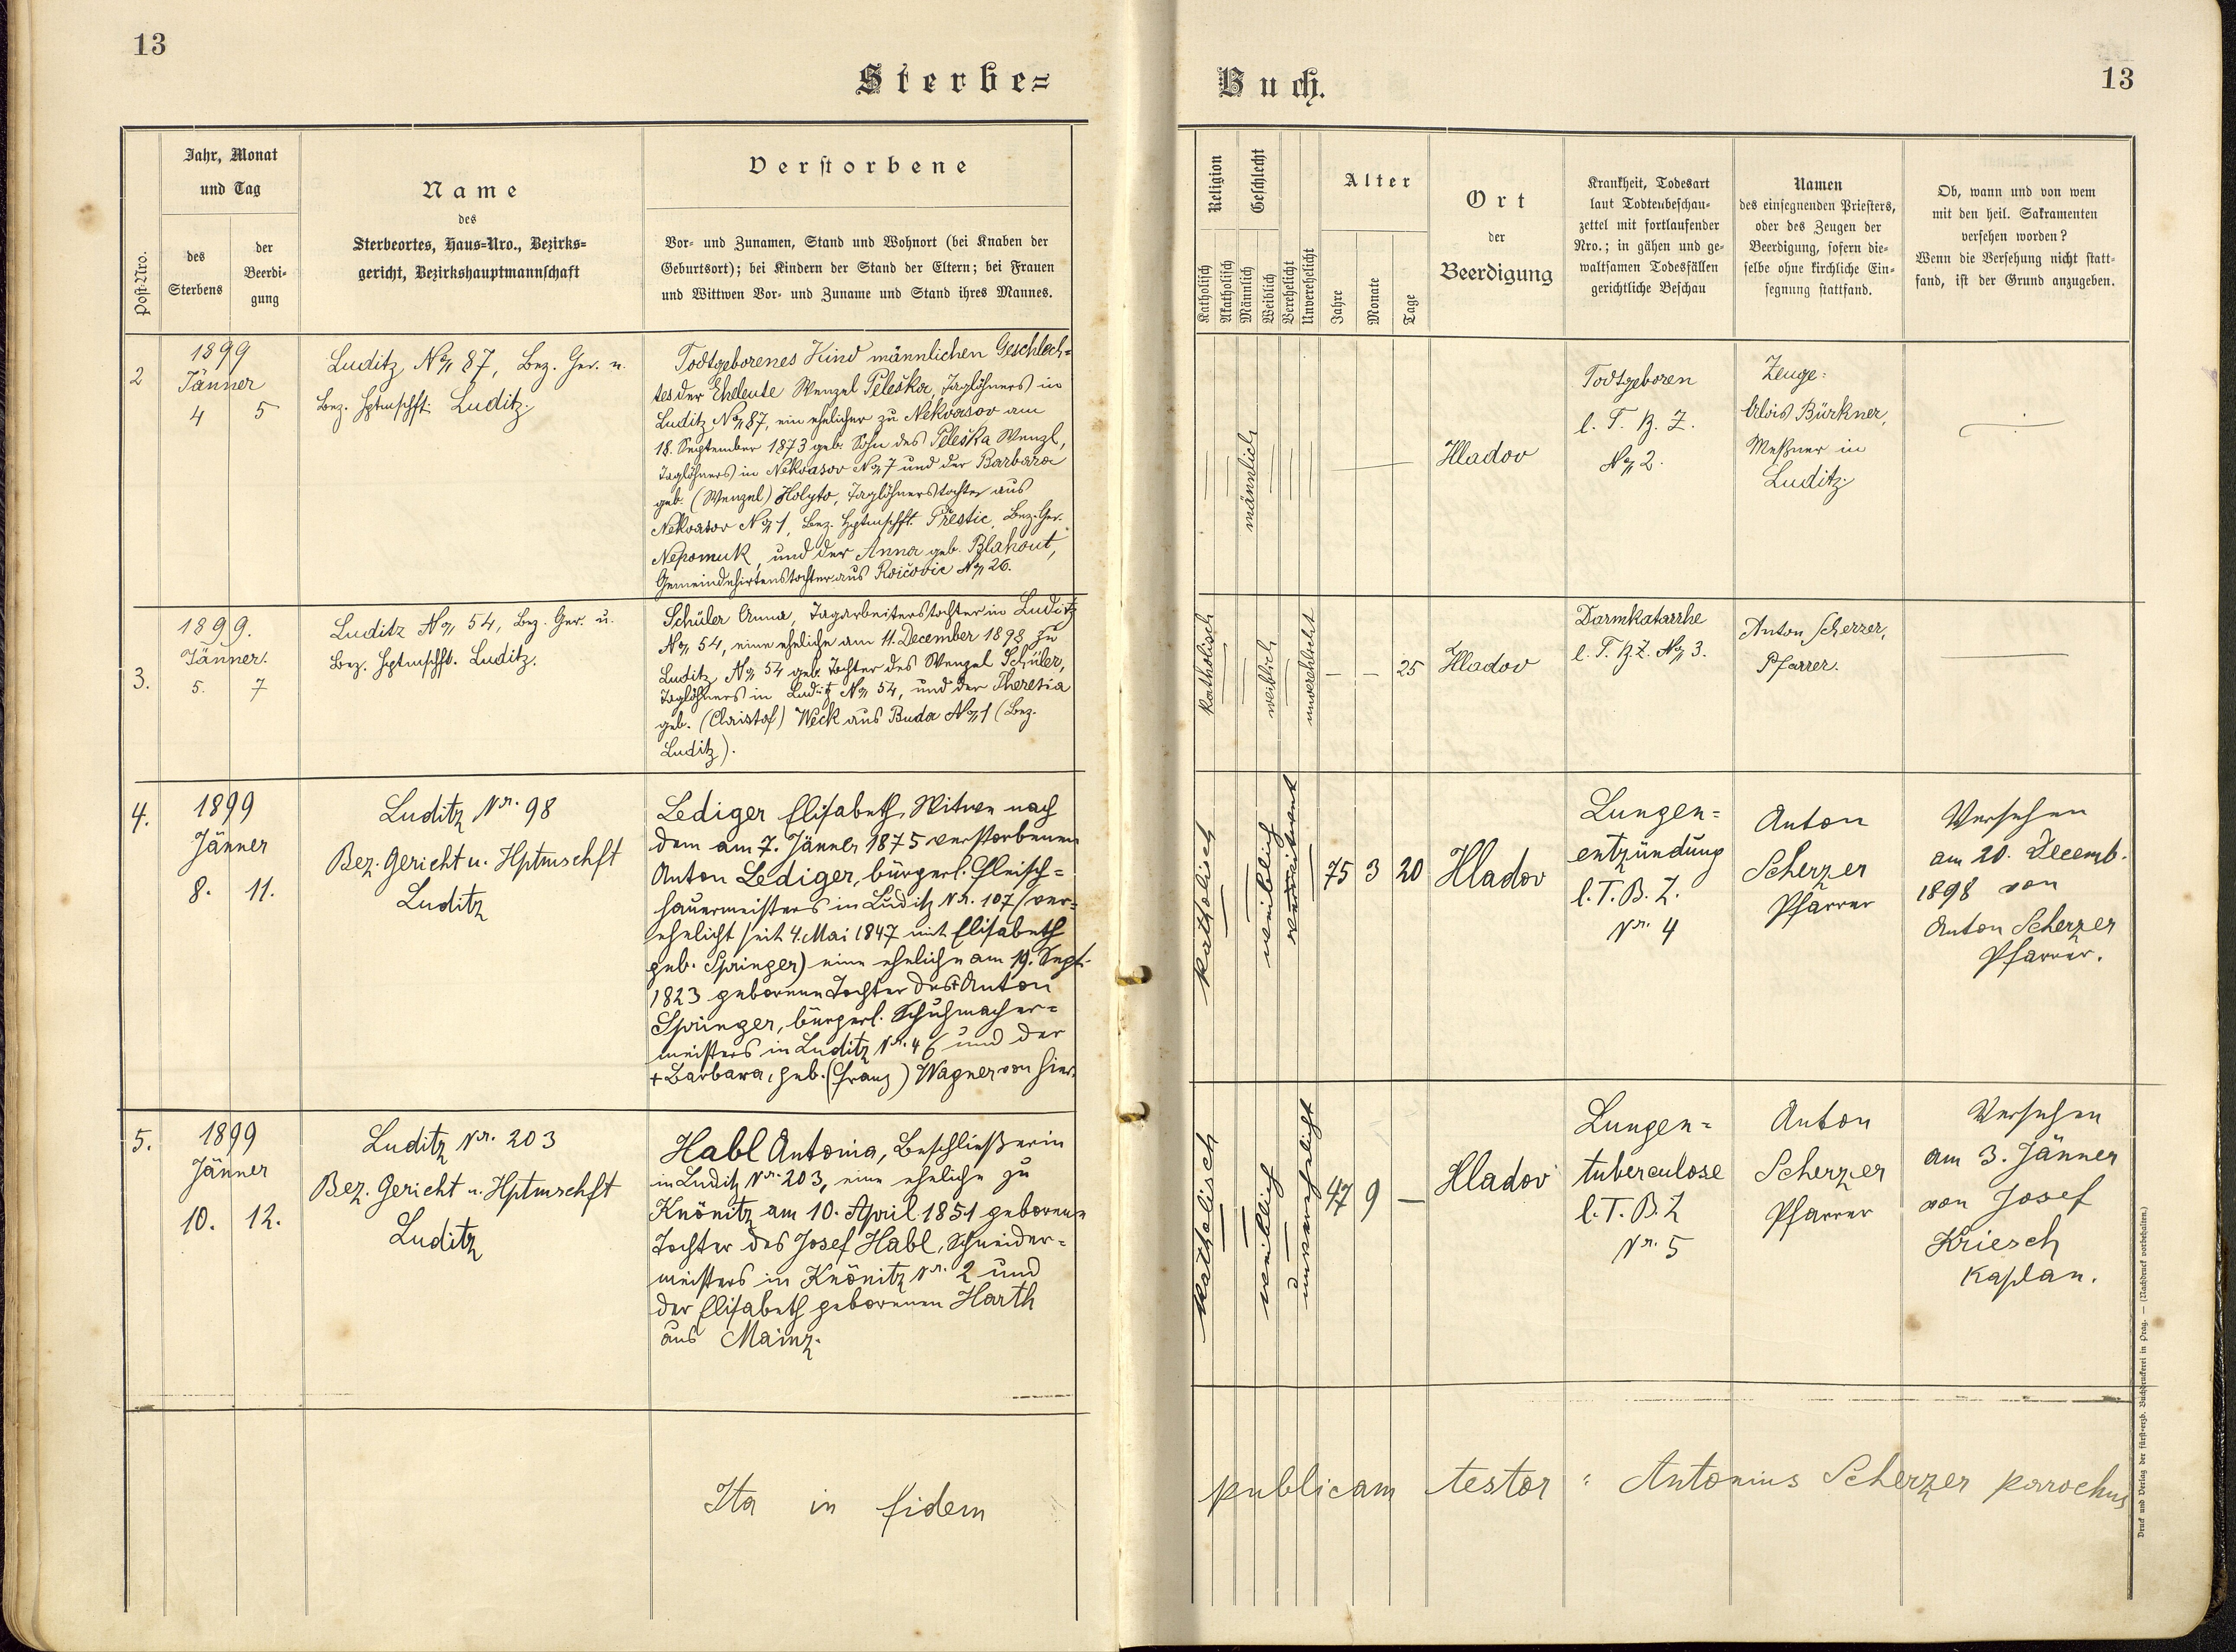 13
Sterbe=
Jahr, Monat
und Tag
Post-Nro.
des
Sterbens
der
Beerdi-
gung
Name
des
Sterbeortes, Haus=Nro., Bezirks=
gericht, Bezirkshauptmannschaft
Verstorbene
Vor- und Zunamen, Stand und Wohnort (bei Knaben der
Geburtsort); bei Kindern der Stand der Eltern; bei Frauen
und Wittwen Vor- und Zuname und Stand ihres Mannes.
2
1899
Jänner
4 5
Luditz No 87, Bez. Ger. u.
Bez. Hptmschft. Luditz.
Todtgeborenes Kind männlichen Geschlech=
tes der Eheleute Wenzel Peleška, Taglöhners in
Luditz No 87, ein ehelicher zu Nekvasov am
18. September 1873 geb. Sohn des Peleška Wenzl,
Taglöhners in Nekvasov No 7 und der Barbara
geb. (Wenzel) Holyto, Taglöhnerstochter aus
Nekvasov No 1, Bez. Hptmschft. Přestic, Bez. Ger.
Nepomuk, und der Anna geb. Blahout,
Gemeindehirtenstochter aus No 26.
3.
1899.
Jänner.
5. 7
Luditz No 54, Bez. Ger. u.
Bez. Hptmschft. Luditz.
Schüler Anna, Tagarbeiterstochter in Luditz
No 54, eine eheliche am 11. December 1898 zu
Luditz No 54 geb. Tochter des Wenzel Schüler,
Taglöhners in Luditz No 54, und der Theresia
geb. (Christof) Weck aus Buda No 1 (Bez.
Luditz).
4.
1899
Jänner
8. 11.
Luditz Nr. 98
Bez. Gericht u. Hptmschft
Luditz
Lediger Elisabeth, Witwe nach
dem am 7. Jänner 1875 verstorbenen
Anton Lediger, bürgerl. Fleisch=
hauermeisters in Luditz Nr. 107 (ver=
ehelicht seit 4. Mai 1847 mit Elisabeth
geb. Springer) eine eheliche am 19. Sept.
1823 geborene Tochter des + Anton
Springer, bürgerl. Schuhmacher=
meisters in Luditz Nr. 46 und der
+ Barbara, geb. (Franz) Wagner von hier.
5.
1899
Jänner
10. 12.
Luditz Nr. 203
Bez. Gericht u. Hptmschft
Luditz
Habl Antonia, Beschließerin
in Luditz Nr. 203, eine eheliche zu
Knönitz am 10. April 1851 geborene
Tochter des Josef Habl, Schneider=
meisters in Knönitz Nr. 2 und
der Elisabeth geborenen Harth
aus Mainz.
Ita in fidem
Buch.
13
Religion
Geschlecht
Katholisch
Akatholisch
Männlich
Weiblich
Verehelicht
Unverehelicht
Alter
Jahre
Monate
Tage
Ort
der
Beerdigung
Krankheit, Todesart
laut Todtenbeschau-
zettel mit fortlaufender
Nro.; in gähen und ge-
waltsamen Todesfällen
gerichtliche Beschau
Namen
des einsegnenden Priesters,
oder des Zeugen der
Beerdigung, sofern die-
selbe ohne kirchliche Ein-
segnung stattfand.
Ob, wann und von wem
mit den heil. Sakramenten
versehen worden?
Wenn die Versehung nicht statt-
fand, ist der Grund anzugeben.
männlich
Hladov
Todtgeboren
l. T. B. Z.
No 2.
Zeuge:
Alois Bürkner,
Meßner in
Luditz
katholisch
weiblich
unverehelicht
— — 25
Hladov
Darmkatarrhe
l. T. B. Z. No 3.
Anton Scherzer,
Pfarrer.
katholisch
weiblich
verwitwet
75 3 20
Hladov
Lungen=
entzündung
l. T. B. Z.
Nr. 4
Anton
Scherzer
Pfarrer
Versehen
am 20. Decemb.
1898 von
Anton Scherzer
Pfarrer.
katholisch
weiblich
unverehelicht
47 9 —
Hladov
Lungen=
tuberculose
l. T. B. Z
Nr. 5
Anton
Scherzer
Pfarrer
Versehen
am 3. Jänner
von Josef
Kriesch
Kaplan.
publicam testor: Antonius Scherzer parochus
Druck und Verlag der fürst-erzb. Buchdruckerei in Prag. — (Nachdruck vorbehalten.)